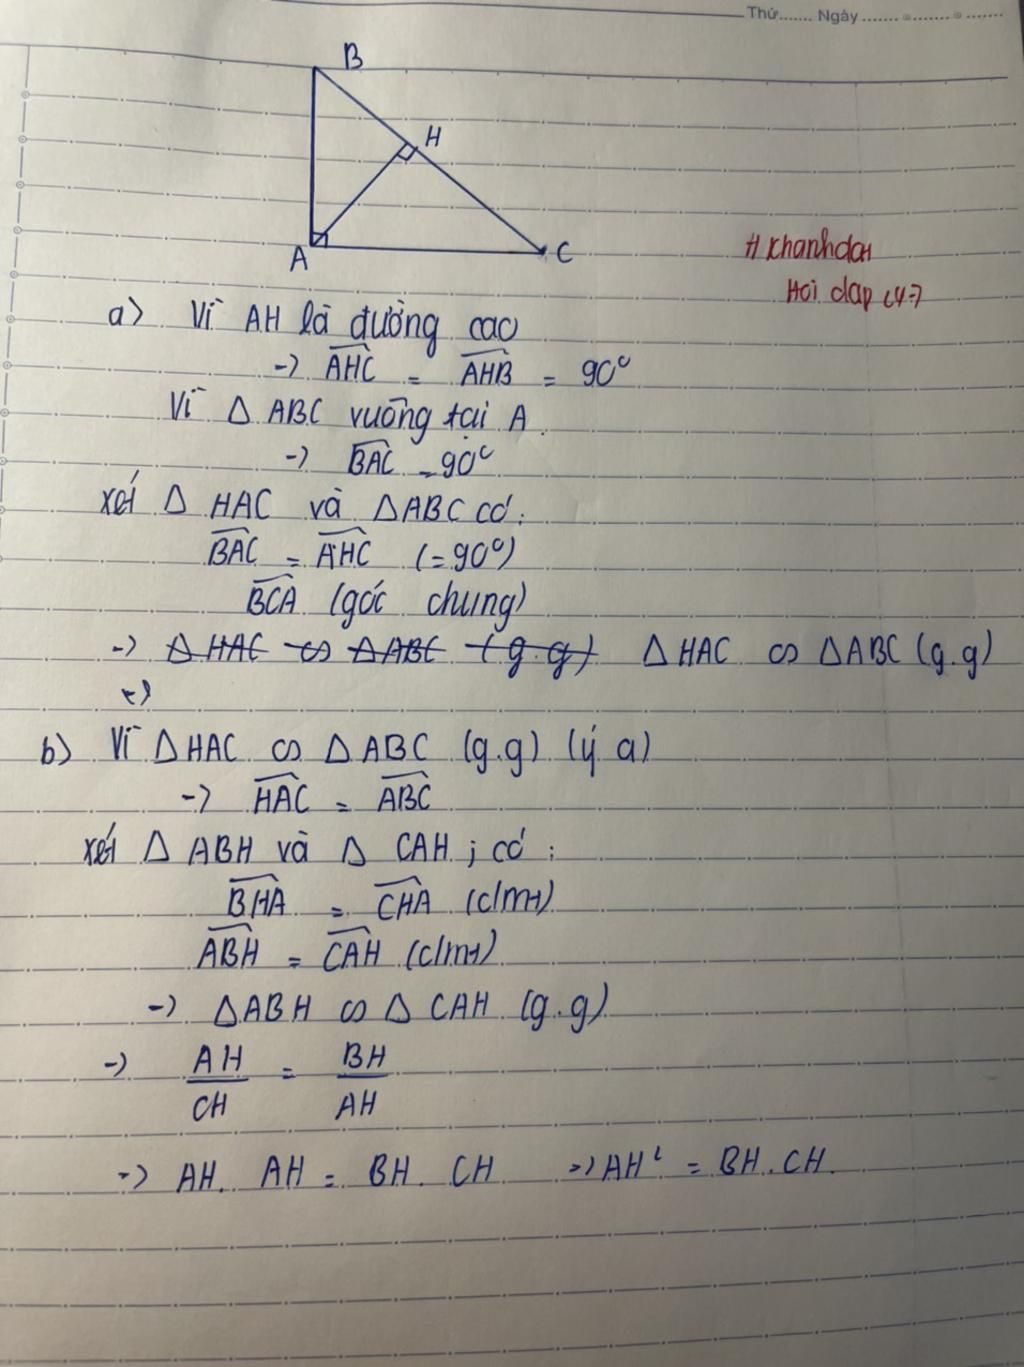 Thứ....... Ngày ....... ....... .......
B
H
A
C
# Khanhdan
Hoi dap 247
a) Vì AH là đường cao
-> AHC = AHB = 90°
Vì △ ABC vuông tại A.
-> BAC = 90°
xét △ HAC và △ABC có:
BAC = AHC (= 90°)
BCA (góc chung)
-> △ HAC ∽ △ABC (g.g) △ HAC ∽ △ABC (g.g)
b) Vì △HAC ∽ △ ABC (g.g) (ý a)
-> HAC = ABC
xét △ ABH và △ CAH ; có :
BHA = CHA (cmt)
ABH = CAH (cmt)
-> △ABH ∽ △ CAH (g.g)
-> AH/CH = BH/AH
-> AH. AH = BH. CH => AH² = BH. CH.